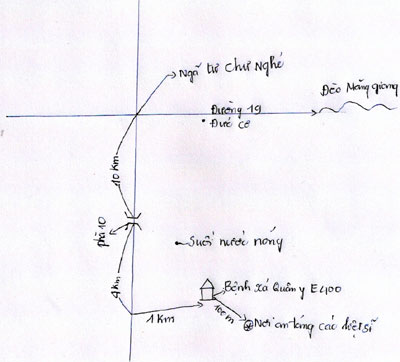 Ngã tư Chư Nghé
Đèo Măng Giang
Đường 19
Đức cơ
10 Km
phà 10
Suối nước nóng
4 Km
Bệnh xá Quân y E400
1 Km
100 m
Nơi an táng các liệt sĩ